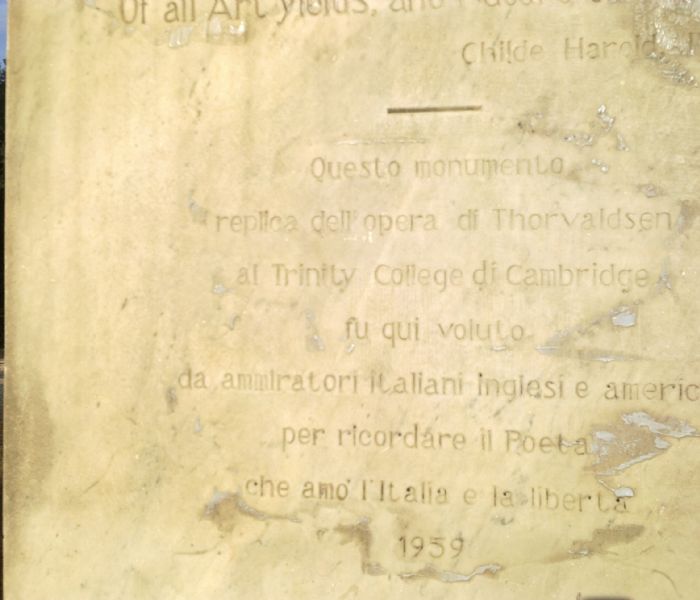 Of all Art yields, and
Childe Harold,
Questo monumento
replica dell'opera di Thorvaldsen
al Trinity College di Cambridge
fu qui voluto
da ammiratori italiani inglesi e americ
per ricordare il Poeta
che amò l'Italia e la libertà
1959